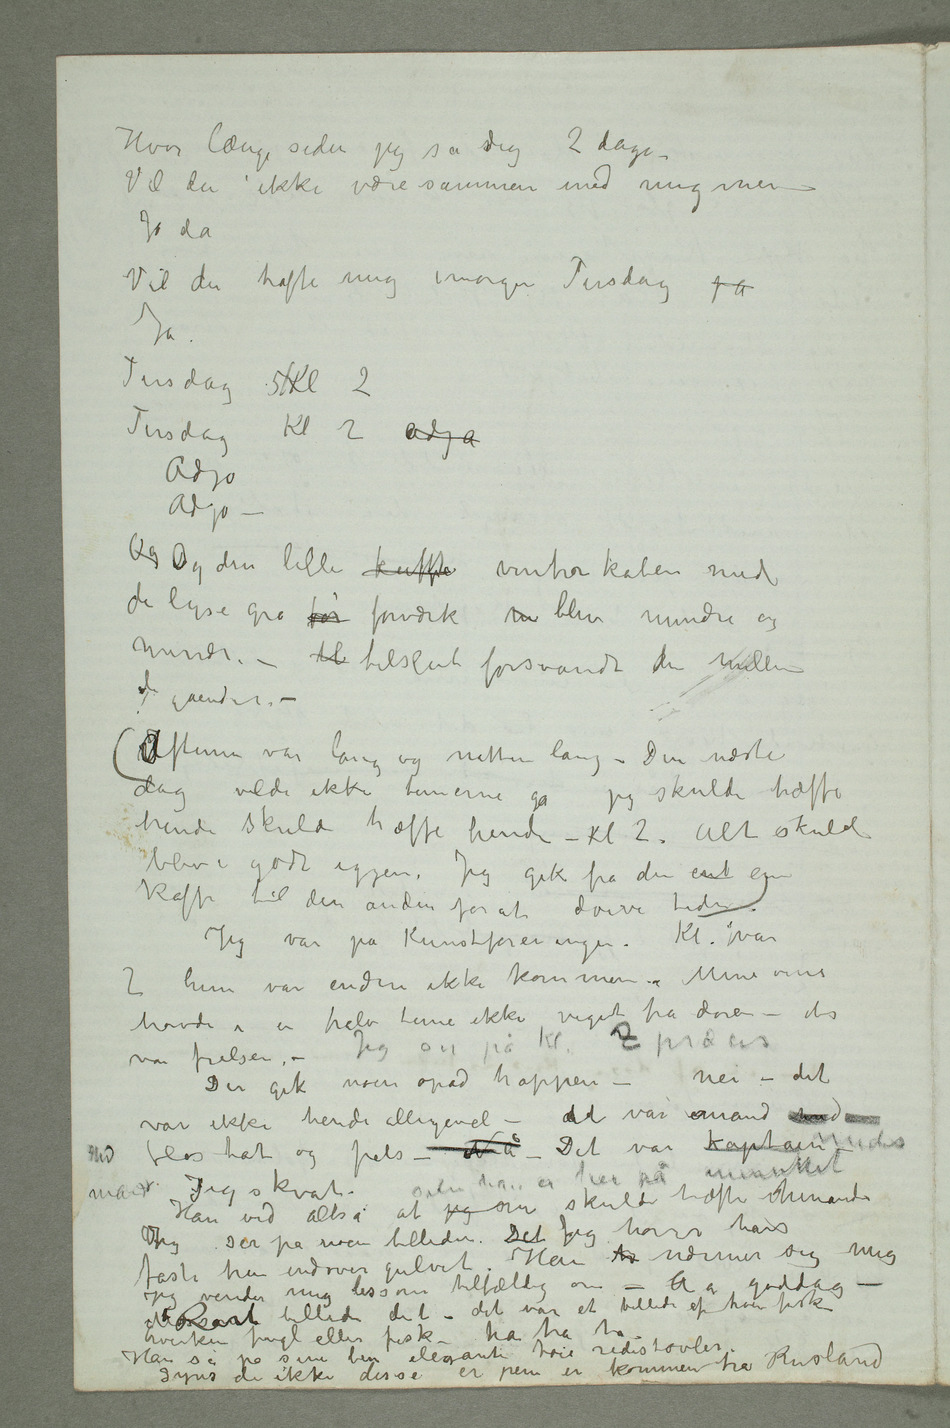 Hvor længe siden jeg sa dig 2 dage –
Vil du ikke være sammen med mig mer –
Jo da
Vil du træffe mig imorgen Tirsdag på
Ja.
Tirsdag 5 Kl 2
Tirsdag Kl 2 adjø
Adjø
Adjø –
Og Og den lille kåffe vinterkåben med
de lyse grå for forværk m blev mindre og
mindre. – til tilslut forsvandt den mellem
d gående. –
Aftenen var lang og natten lang – Den næste
dag vilde ikke timerne gå jeg skulde træffe
hende skulde træffe hende – Kl 2. Alt skulde
blive godt igjen. Jeg gik fra den ent ene
Kaffe til den anden for at døive tiden.
Jeg var på Kunstforeningen. Kl. var
2 hun var endnu ikke kommen. Mine øine
havde i en halv time ikke veget fra døren – der
var frelsen. – Jeg ser på Kl. 2 præcis
Der gik noen opad trappen – nei – det
var ikke hende alligevel – det var mand med
med flos hat og pels – Nå – Det var Kaptain
mand Jeg skvat. siden han er her på minuttet
Han ved altså at jeg som skulde træffe hinanden
Jeg ser på noen billeder. Det Jeg hører hans
faste trin indover gulvet. Han nærmer sig mig
jeg vender mig lissom tilfældig om – A a goddag –
Rart billede det – det var et billede af
hverken fugl eller fisk – ha ha ha
Han så på sine ben elegante høie ridestøvler.
Syns de ikke disse er pene er kommen fra Rusland